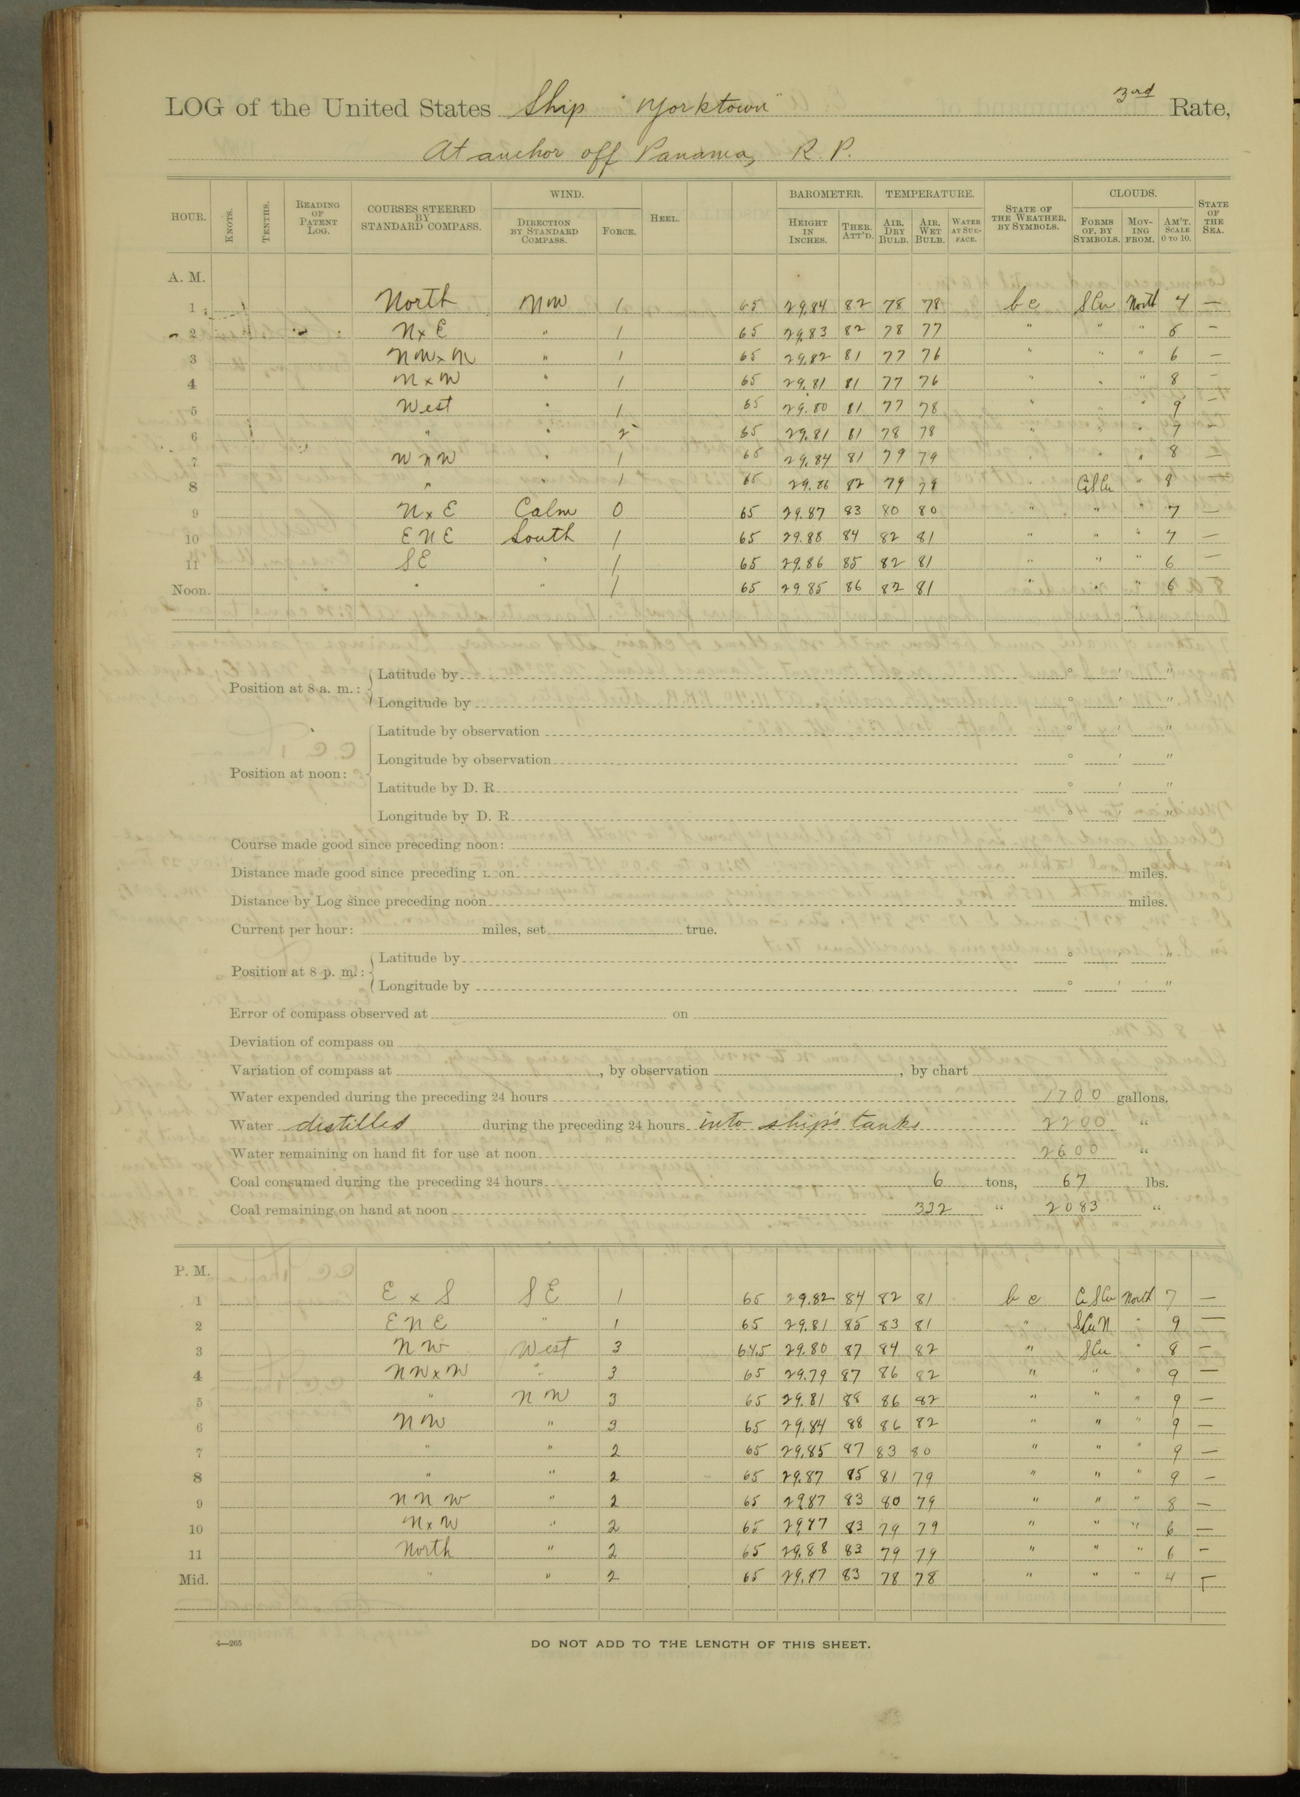 LOG of the United States Ship "Yorktown" 3rd Rate,
At anchor off Panama, R. P.
HOUR. KNOTS. TENTHS. READING OF PATENT LOG. COURSES STEERED BY STANDARD COMPASS. WIND. DIRECTION BY STANDARD COMPASS. FORCE. HEEL. BAROMETER. HEIGHT IN INCHES. THER. ATT'D. TEMPERATURE. AIR, DRY BULB. AIR, WET BULB. WATER AT SURFACE. STATE OF THE WEATHER, BY SYMBOLS. CLOUDS. FORMS OF, BY SYMBOLS. MOVING FROM. AM'T. SCALE 0 TO 10. STATE OF THE SEA.
A. M.
1 North NW 1 65 29.84 82 78 78 bc SCu North 4 —
2 NxE " 1 65 29.83 82 78 77 " " " 5 —
3 NWxN " 1 65 29.82 81 77 76 " " " 6 —
4 NxW " 1 65 29.81 81 77 76 " " " 8 —
5 West " 1 65 29.80 81 77 78 " " 9 —
6 " " 2 65 29.81 81 78 78 " " " 7 —
7 WNW " 1 65 29.84 81 79 79 " " " 8 —
8 " " 1 65 29.86 82 79 79 " CiSCu " 8 —
9 NxE Calm 0 65 29.87 83 80 80 " " " 7 —
10 ENE South 1 65 29.88 84 82 81 " " " 7 —
11 SE " 1 65 29.86 85 82 81 " " " 6 —
Noon. " " 1 65 29.85 86 82 81 " " " 6
Position at 8 a. m.: Latitude by ° ' "
Longitude by ° ' "
Position at noon: Latitude by observation ° ' "
Longitude by observation ° ' "
Latitude by D. R. ° ' "
Longitude by D. R. ° ' "
Course made good since preceding noon:
Distance made good since preceding noon miles.
Distance by Log since preceding noon miles.
Current per hour: miles, set true.
Position at 8 p. m.: Latitude by ° ' "
Longitude by ° ' "
Error of compass observed at on
Deviation of compass on
Variation of compass at , by observation , by chart
Water expended during the preceding 24 hours 1700 gallons.
Water distilled during the preceding 24 hours into ship's tanks 2200 "
Water remaining on hand fit for use at noon 2600 "
Coal consumed during the preceding 24 hours 6 tons, 67 lbs.
Coal remaining on hand at noon 332 " 2083 "
P. M.
1 ExS SE 1 65 29.82 84 82 81 bc CiSCu North 7 —
2 ENE " 1 65 29.81 85 83 81 " SCuN " 9 —
3 NW West 3 64.5 29.80 87 84 82 " SCu " 8 —
4 NWxW " 3 65 29.79 87 86 82 " " " 9 —
5 " NW 3 65 29.81 88 86 82 " " " 9 —
6 NW " 3 65 29.84 88 86 82 " " " 9 —
7 " " 2 65 29.85 87 83 80 " " " 9 —
8 " " 2 65 29.87 85 81 79 " " " 9 —
9 NNW " 2 65 2987 83 80 79 " " " 8 —
10 NxW " 2 65 2987 83 79 79 " " " 6 —
11 North " 2 65 29.88 83 79 79 " " " 6 —
Mid. " " 2 65 29.87 83 78 78 " " " 4 —
4—265
DO NOT ADD TO THE LENGTH OF THIS SHEET.